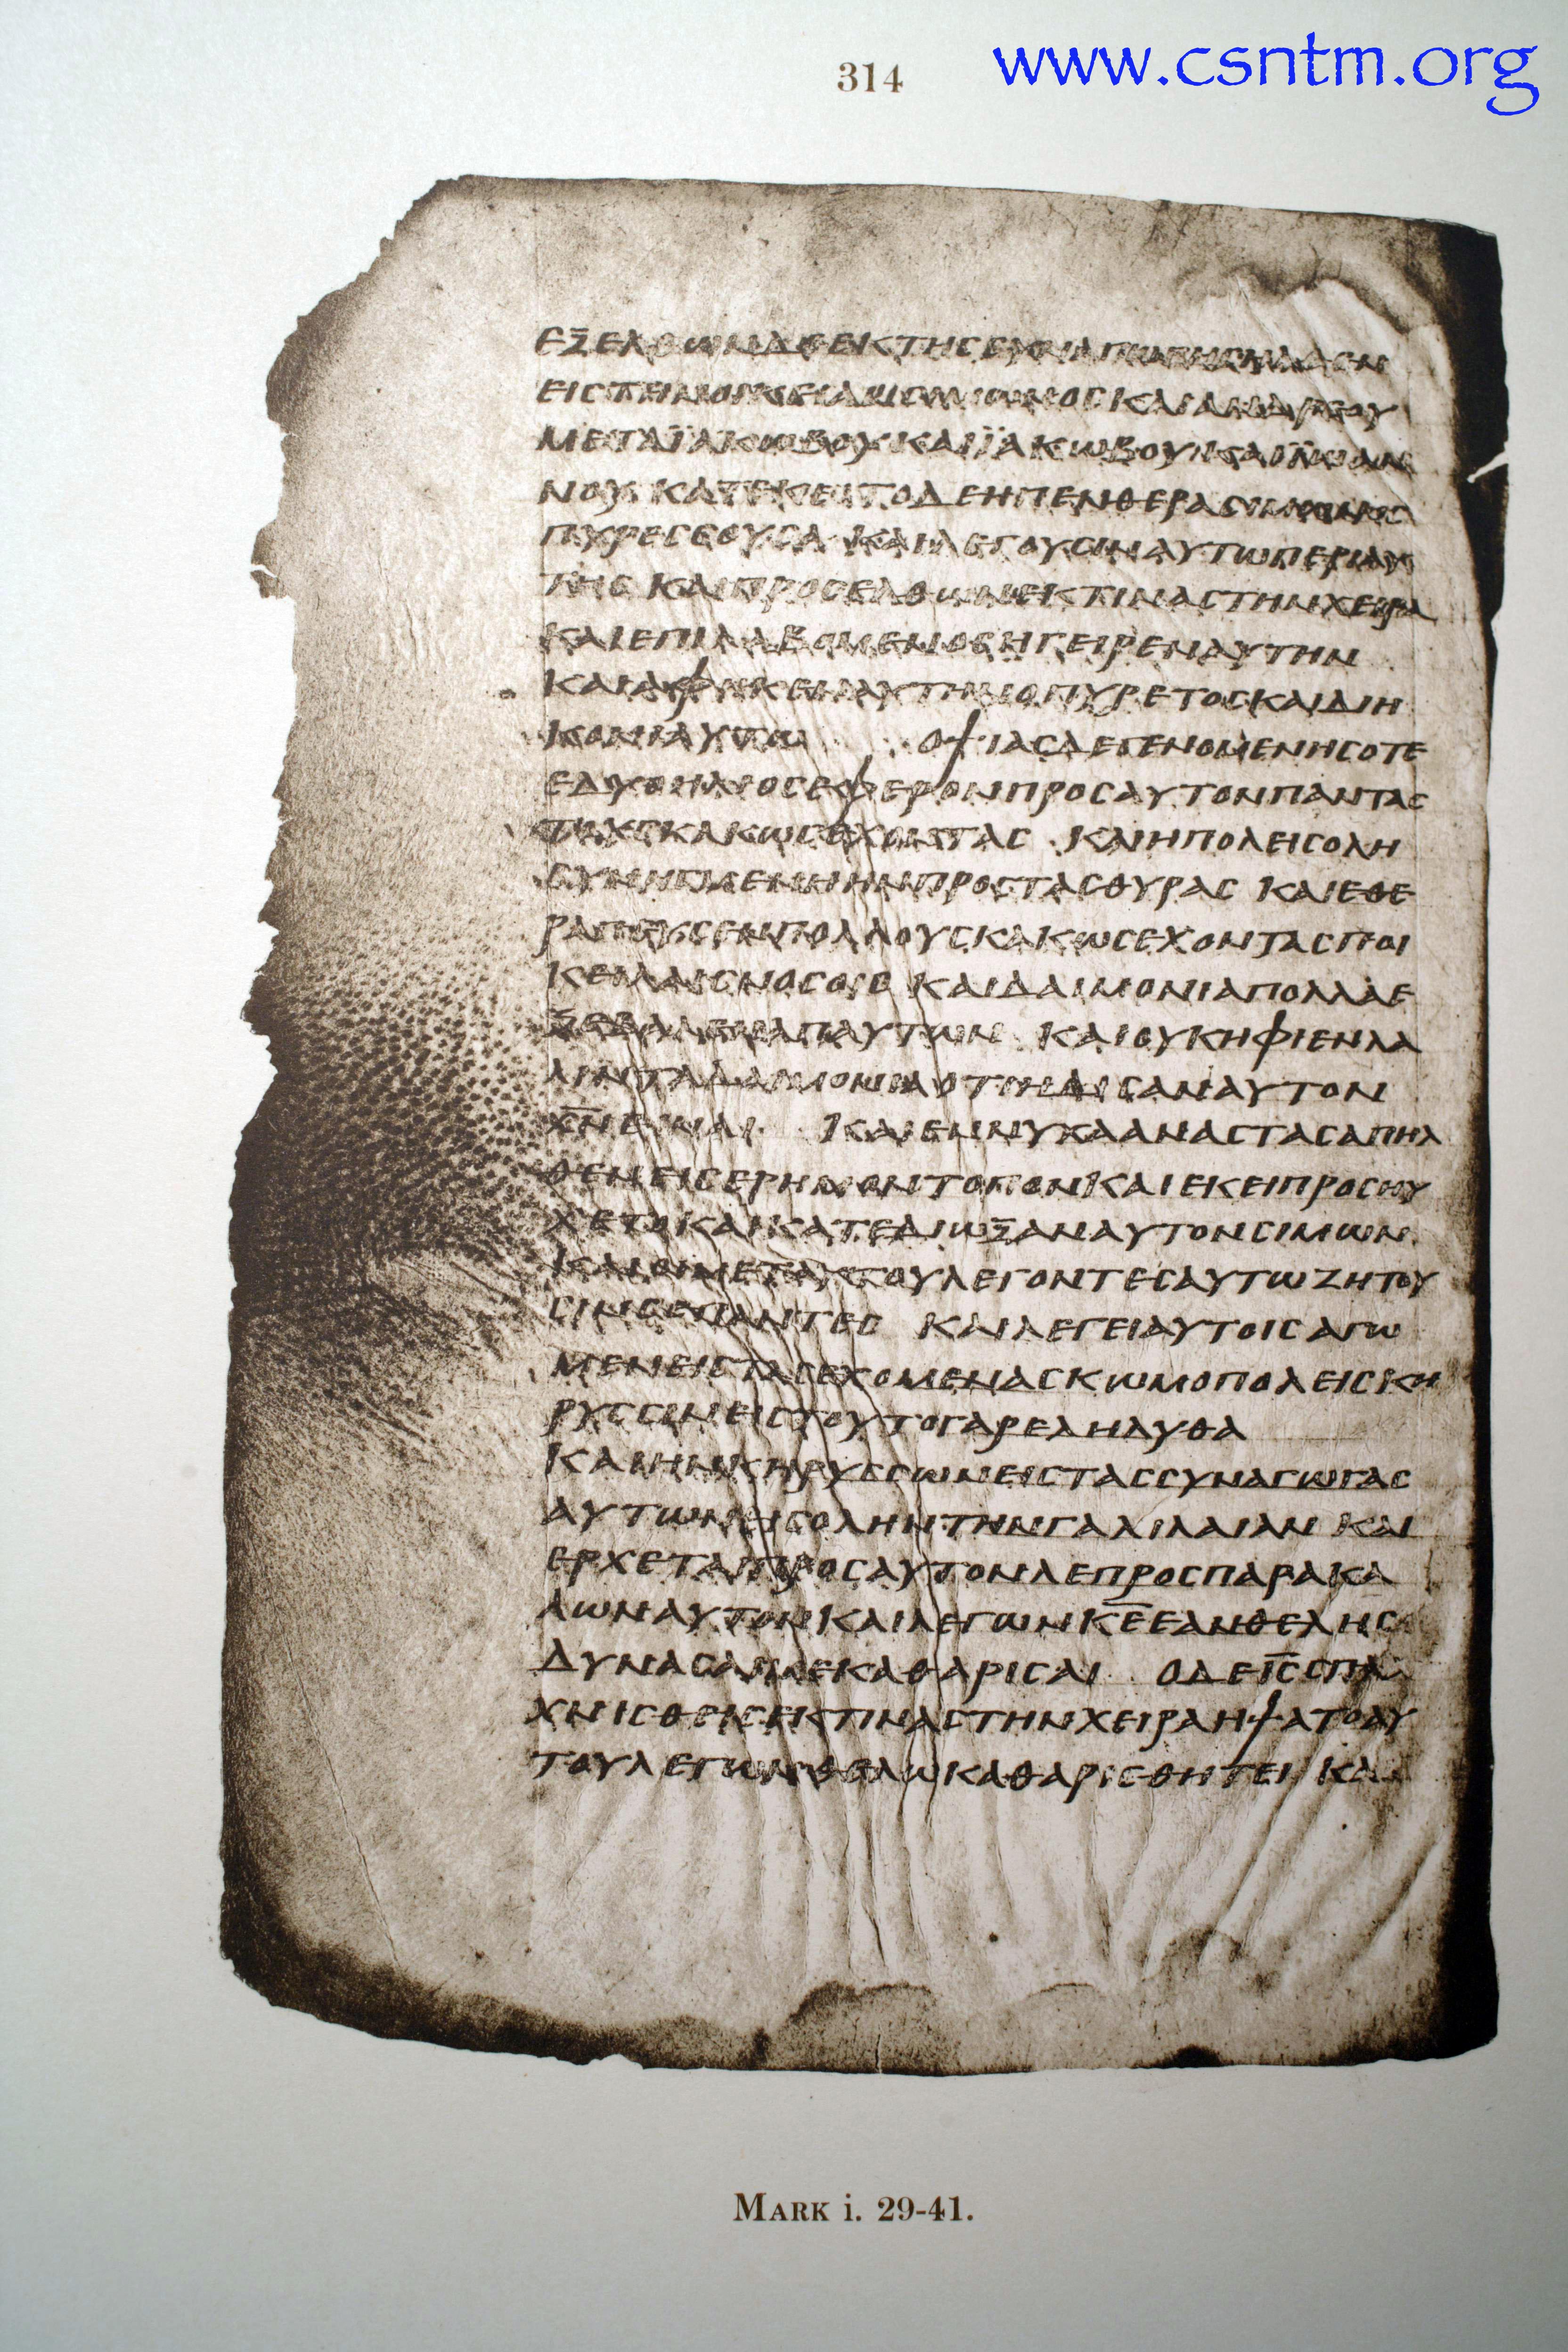 314
www.csntm.org
ΕΞΕΛΘΩΝΔΕΕΚΤΗϹ
ΕΙϹΤΗΝΟΙΚΕΙΑΝϹΙΜΩΝΟϹΚΑΙΑΝΔΡΕΟΥ
ΜΕΤΑΪΑΚΩΒΟΥΚΑΙΪΑΚΩΒΟΥΚΑΙΪΩΑΝ
ΝΟΥ ΚΑΤΕΚΕΙΤΟΔΕΗΠΕΝΘΕΡΑϹΙΜΩΝΟϹ
ΠΥΡΕϹϹΟΥϹΑ ΚΑΙΛΕΓΟΥϹΙΝΑΥΤΩΠΕΡΙΑΥ
ΤΗϹ ΚΑΙΠΡΟϹΕΛΘΩΝΕΚΤΙΝΑϹΤΗΝΧΕΙΡΑ
ΚΑΙΕΠΙΛΑΒΟΜΕΝΟϹΗΓΕΙΡΕΝΑΥΤΗΝ
ΚΑΙΑΦΗΚΕΝΑΥΤΗΝΟΠΥΡΕΤΟϹΚΑΙΔΙΗ
ΚΟΝΙΑΥΤΩ ΟΨΙΑϹΔΕΓΕΝΟΜΕΝΗϹΟΤΕ
ΕΔΥΟΗΛΙΟϹΕΦΕΡΟΝΠΡΟϹΑΥΤΟΝΠΑΝΤΑϹ
ΤΟΥϹΚΑΚΩϹΕΧΟΝΤΑϹ ΚΑΙΗΠΟΛΕΙϹΟΛΗ
ϹΥΝΗΓΜΕΝΗΗΝΠΡΟϹΤΑϹΘΥΡΑϹ ΚΑΙΕΘΕ
ΡΑΠΕΥϹΕΝΠΟΛΛΟΥϹΚΑΚΩϹΕΧΟΝΤΑϹΠΟΙ
ΚΕΙΛΑΙϹΝΟϹΟΙϹ ΚΑΙΔΑΙΜΟΝΙΑΠΟΛΛΑΕ
ΞΕΒΑΛΕΝΑΠΑΥΤΩΝ ΚΑΙΟΥΚΗΦΙΕΝΛΑ
ΛΙΝΤΑΔΑΙΜΟΝΙΑΟΤΙΗΔΙϹΑΝΑΥΤΟΝ
Χ̅Ν̅ΕΙΝΑΙ ΚΑΙΕΝΝΥΚΑΑΝΑϹΤΑϹΑΠΗΛ
ΘΕΝΕΙϹΕΡΗΜΟΝΤΟΠΟΝΚΑΙΕΚΕΙΠΡΟϹΗΥ
ΧΕΤΟΚΑΙΚΑΤΕΔΙΩΞΑΝΑΥΤΟΝϹΙΜΩΝ
ΚΑΙΟΙΜΕΤΑΥΤΟΥΛΕΓΟΝΤΕϹΑΥΤΩΖΗΤΟΥ
ϹΙΝϹΕΠΑΝΤΕϹ ΚΑΙΛΕΓΕΙΑΥΤΟΙϹΑΓΩ
ΜΕΝΕΙϹΤΑϹΕΧΟΜΕΝΑϹΚΩΜΟΠΟΛΕΙϹΚΗ
ΡΥϹϹΙΝΕΙϹΤΟΥΤΟΓΑΡΕΛΗΛΥΘΑ
ΚΑΙΗΝΚΗΡΥϹϹΩΝΕΙϹΤΑϹϹΥΝΑΓΩΓΑϹ
ΑΥΤΩΝΕΙϹΟΛΗΝΤΗΝΓΑΛΙΛΑΙΑΝ ΚΑΙ
ΕΡΧΕΤΑΙΠΡΟϹΑΥΤΟΝΛΕΠΡΟϹΠΑΡΑΚΑ
ΛΩΝΑΥΤΟΝΚΑΙΛΕΓΩΝΚ̅Ε̅ΕΑΝΘΕΛΗϹ
ΔΥΝΑϹΑΙΜΕΚΑΘΑΡΙϹΑΙ ΟΔΕΙ̅Ϲ̅ϹΠΛ
ΧΝΙϹΘΕΙϹΕΚΤΙΝΑϹΤΗΝΧΕΙΡΑΗΨΑΤΟΑΥ
ΤΟΥΛΕΓΩΝΘΕΛΩΚΑΘΑΡΙϹΘΗΤΕΙ ΚΑΙ
MARK i. 29-41.